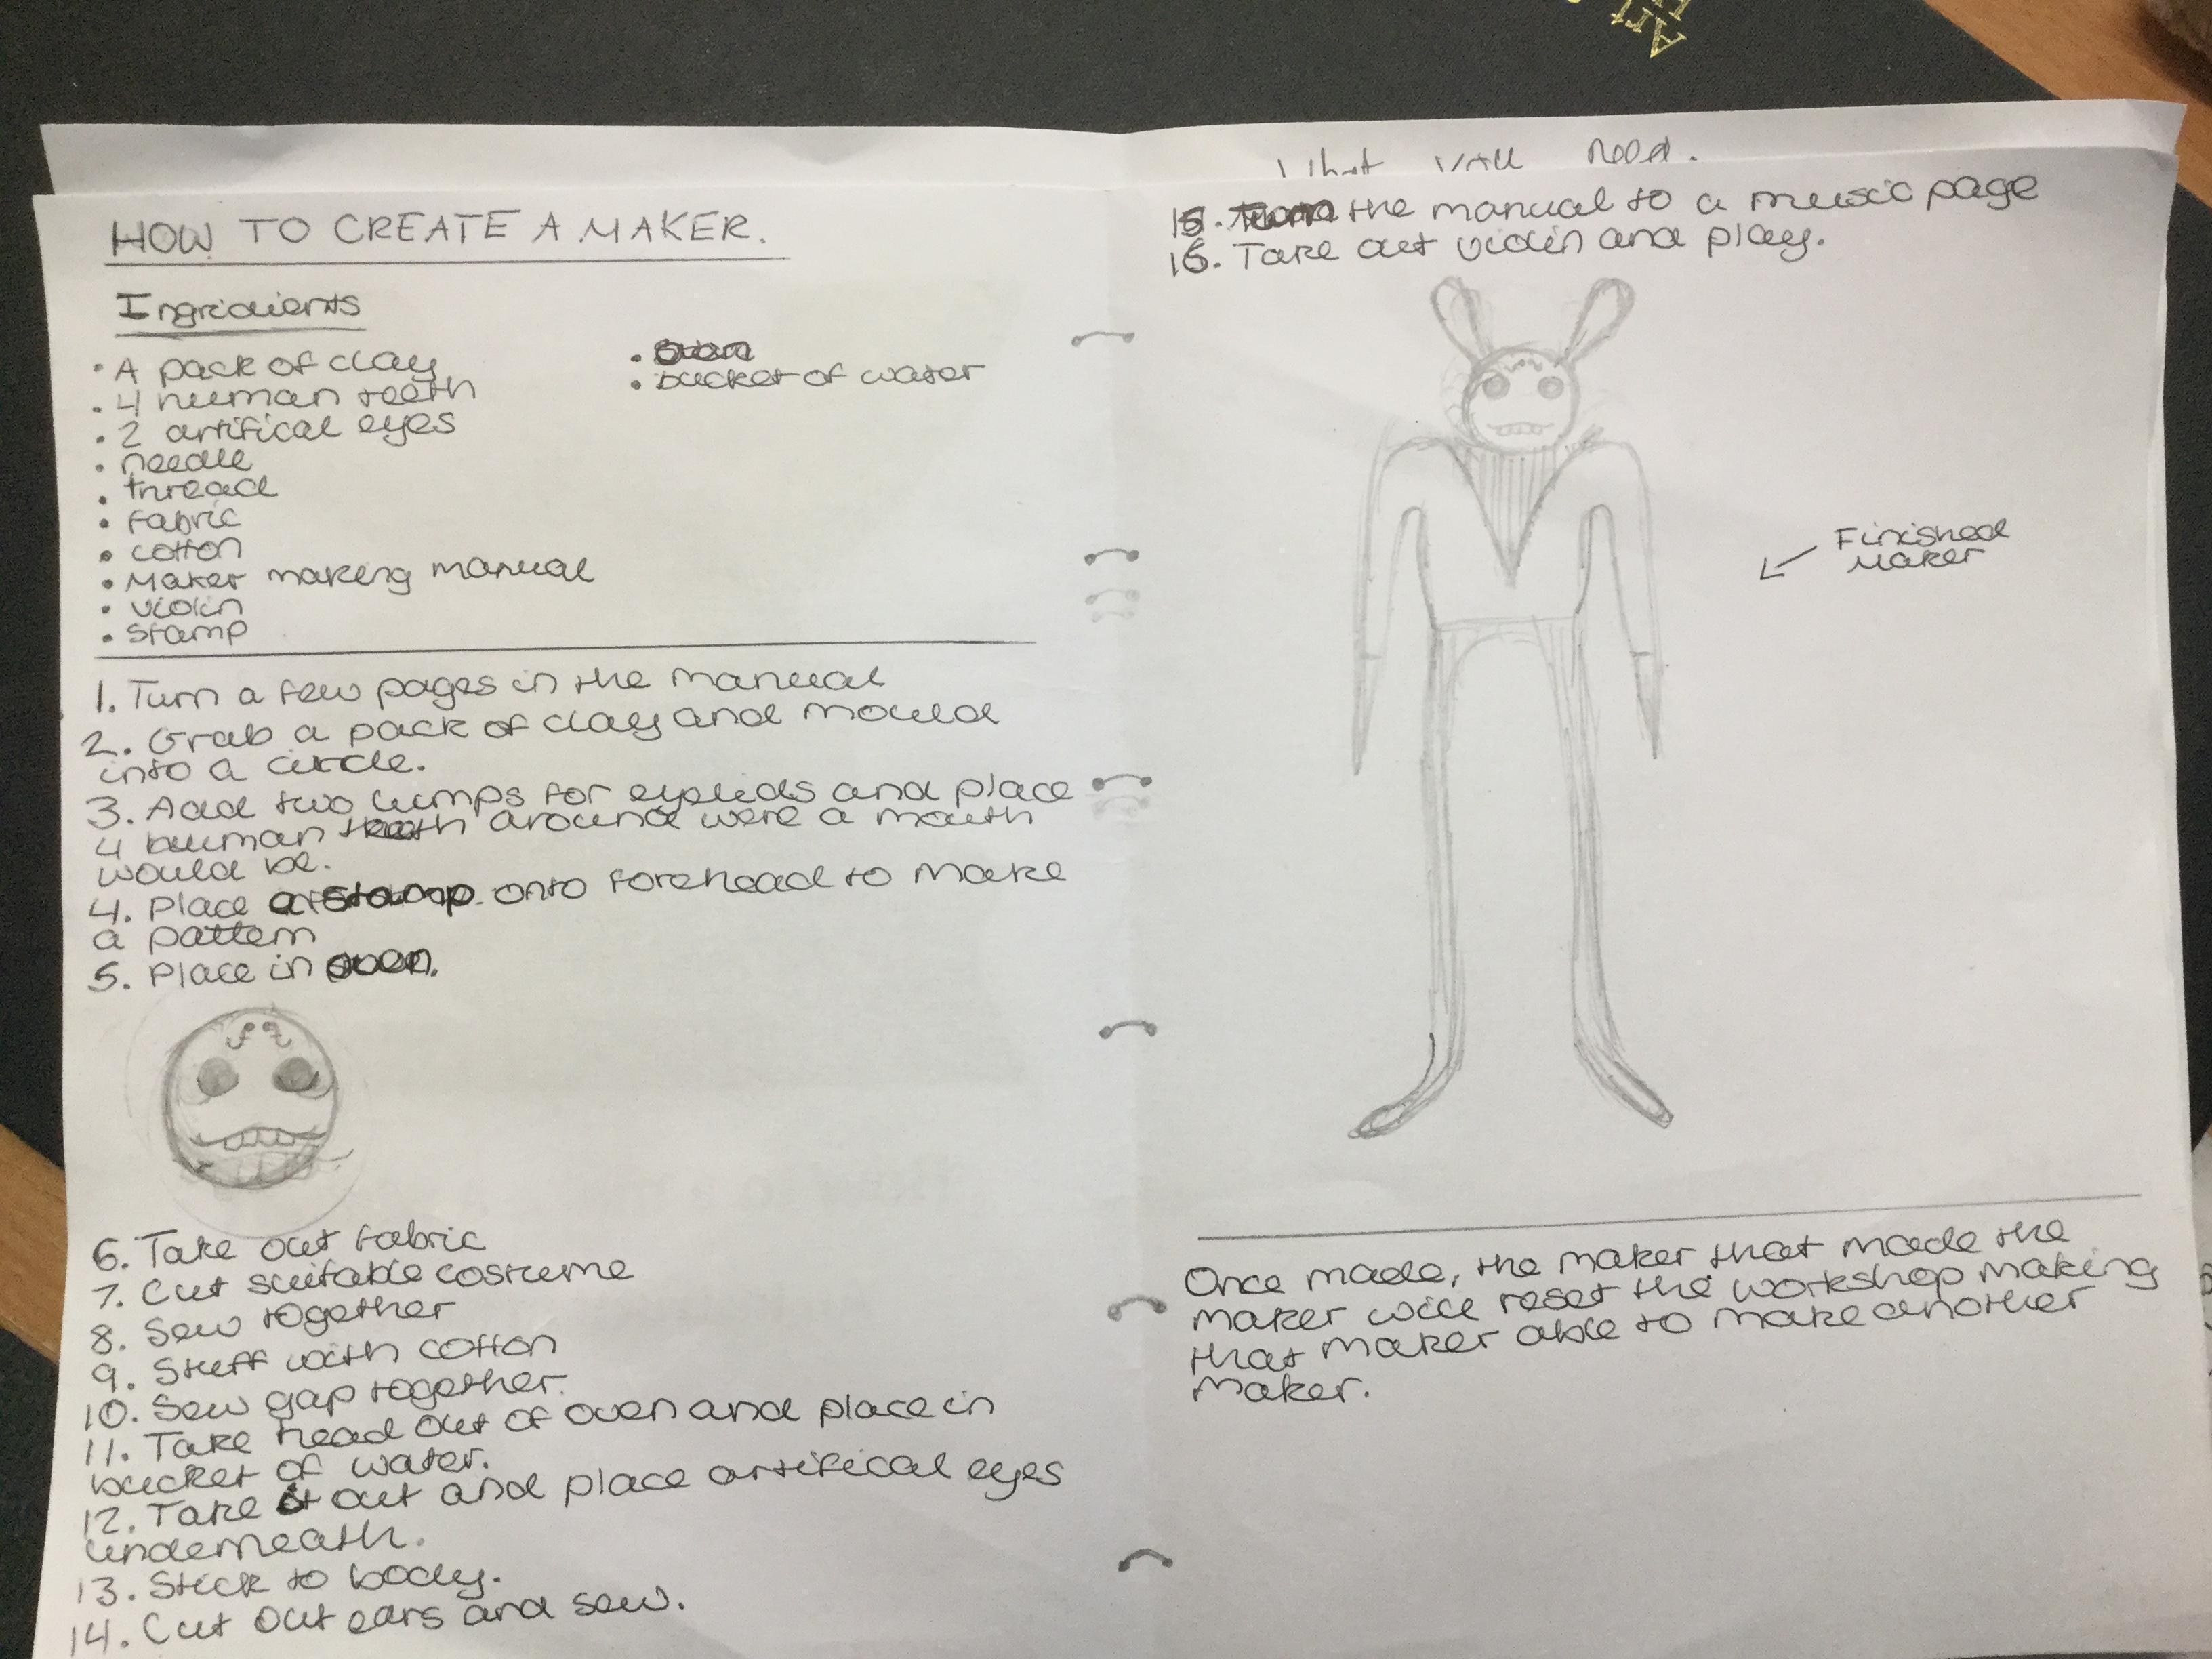 Art
HOW TO CREATE A MAKER.
Ingridients
• A pack of clay
• 4 human teeth
• 2 artifical eyes
• needle
• thread
• fabric
• cotton
• Maker making manual
• violin
• stamp
• oven
• bucket of water
1. Turn a few pages in the manual
2. Grab a pack of clay and mould
into a circle.
3. Add two lumps for eyelids and place
4 human teeth around were a mouth
would be.
4. Place a stamp onto forehead to make
a pattern
5. Place in oven.
6. Take out fabric
7. Cut suitable costume
8. Sew together
9. Stuff with cotton
10. Sew gap together.
11. Take head out of oven and place in
bucket of water.
12. Take it out and place artifical eyes
underneath.
13. Stick to body.
14. Cut out ears and sew.
need.
15. Turn the manual to a music page
16. Take out violin and play.
Finished
Maker
Once made, the maker that made the
maker will reset the workshop making
that maker able to make another
maker.